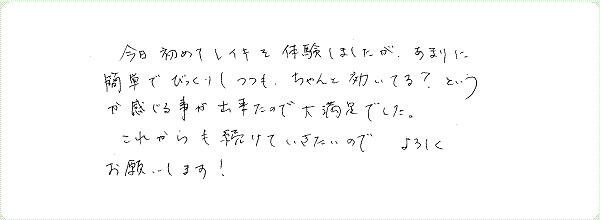 今日初めてレイキを体験しましたが、あまりに
簡単でびっくりしつつも、ちゃんと効いてる？という
か感じる事が出来たので大満足でした。
これからも続けていきたいので よろしく
お願いします！